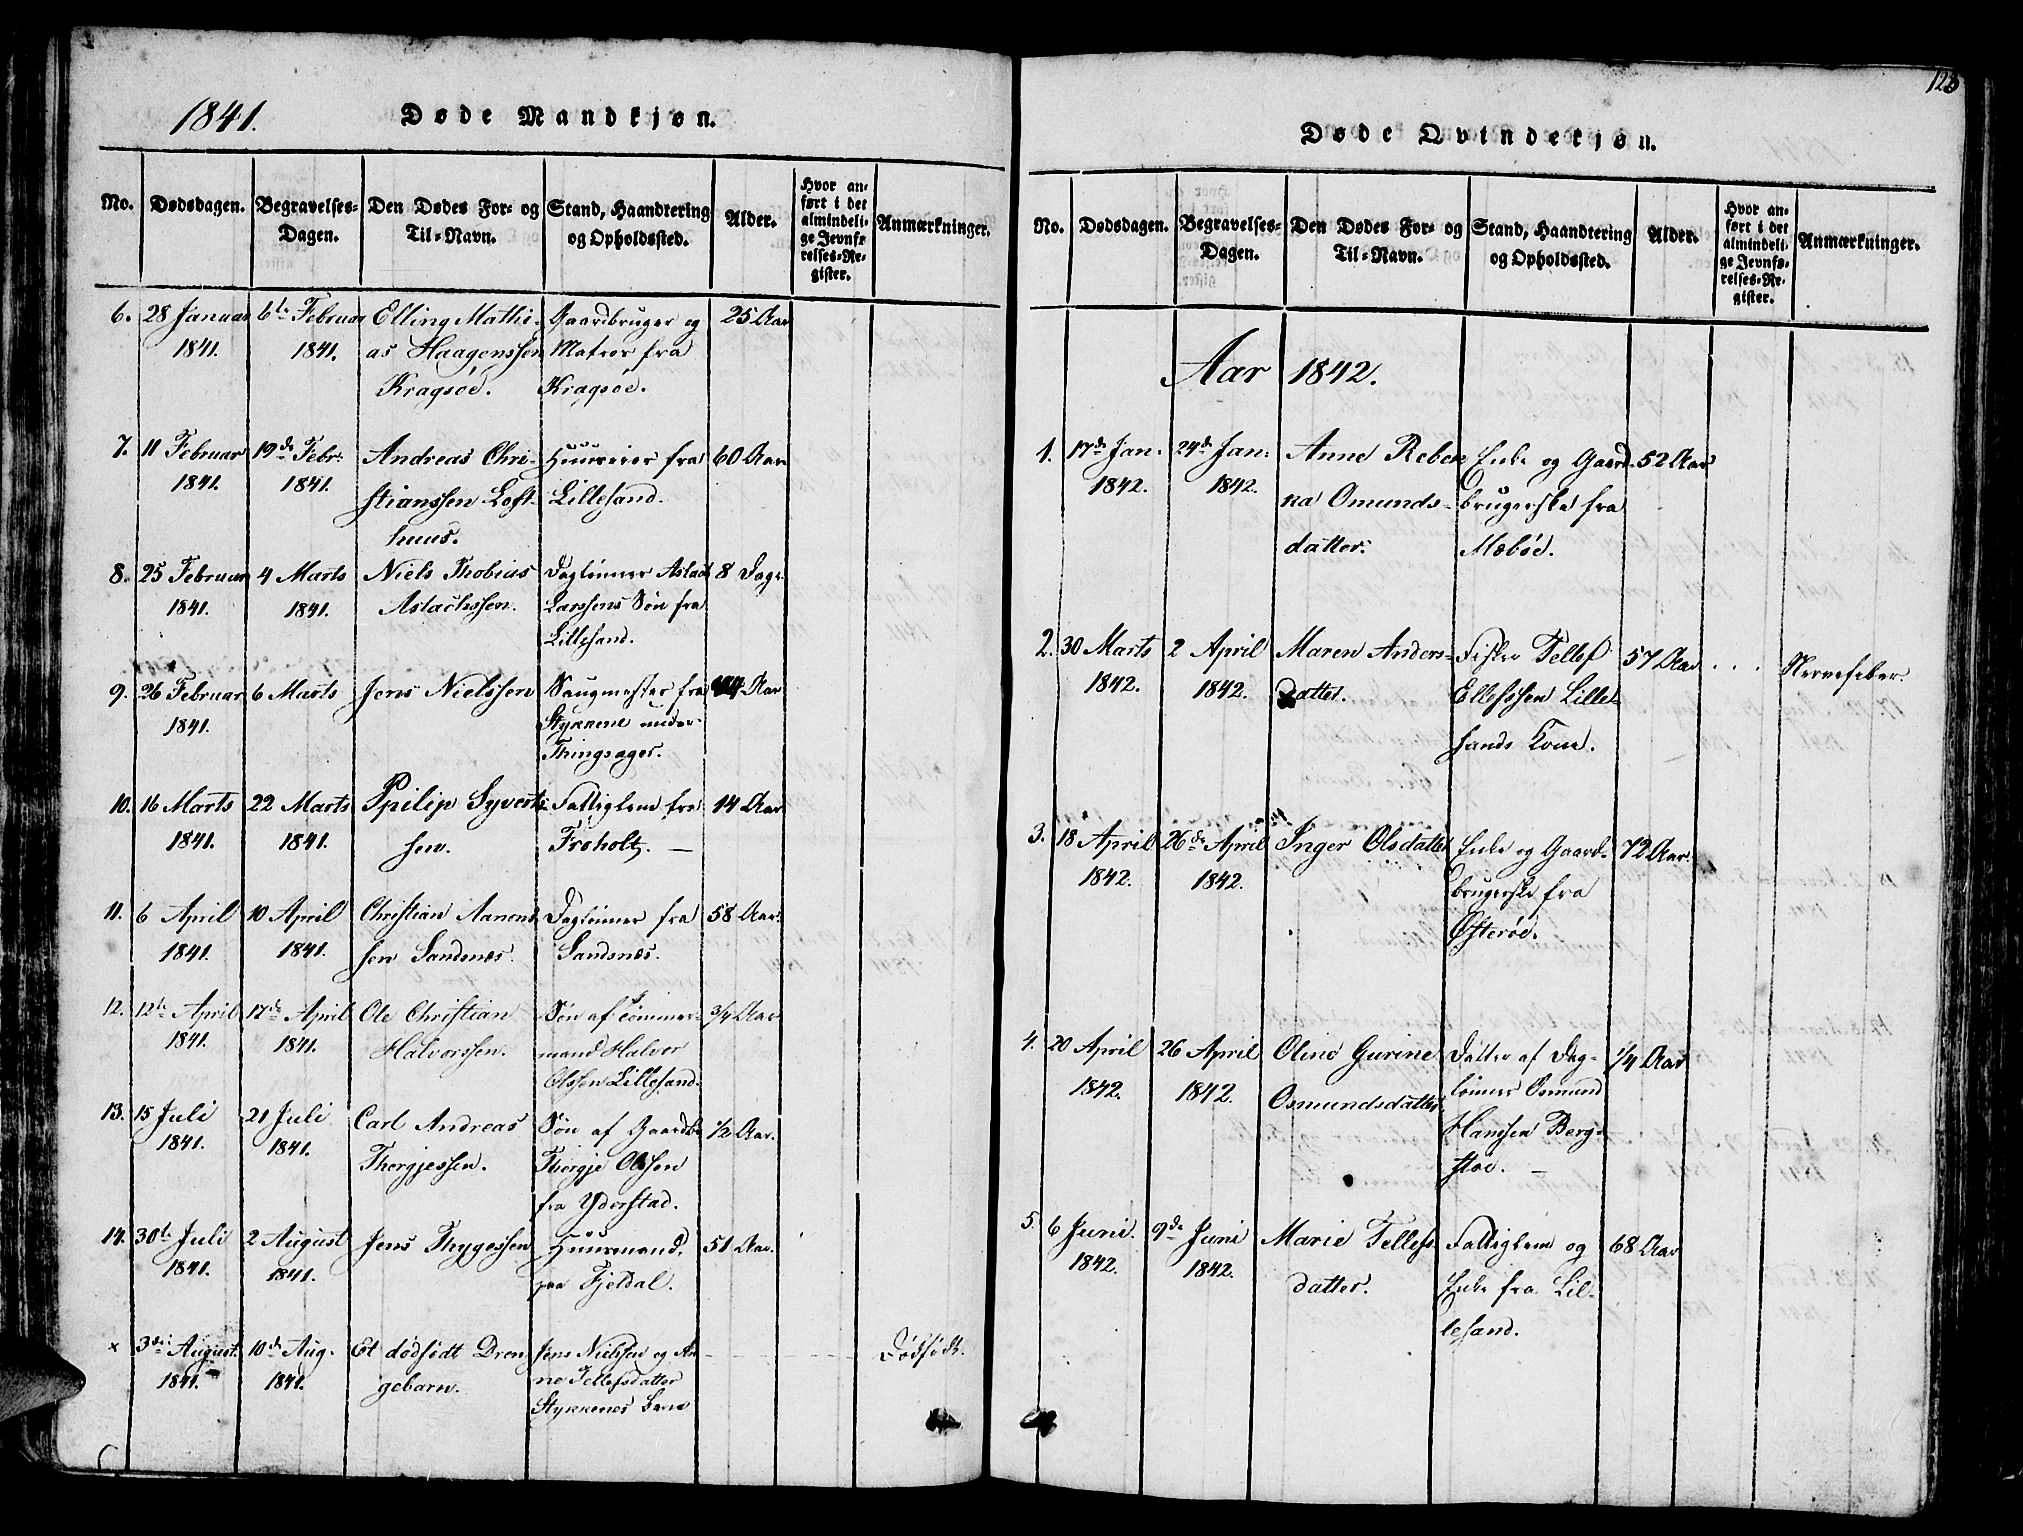 1841.
Døde Mandkjøn.
No.
Dødsdagen.
Begravelses-
Dagen.
Den Dødes For- og
Til-Navn.
Stand, Haandtering
og Opholdssted.
Alder.
Hvor an-
ført i det
almindeli-
ge Jevnfø-
relses-Re-
gister.
Anmærkninger.
6.
28 Januar
1841.
6te Februar
1841.
Elling Mathi-
as Haagenssen
Kragsöe.
Gaardbruger og
Matros fra
Kragsöe.
25 Aar
7.
11 Februar
1841.
19de Febr.
1841.
Andreas Chri-
stianssen Loft-
huus.
Huuseier fra
Lillesand.
60 Aar
8.
25 Februar
1841.
4 Marts
1841.
Niels Thobias
Aslachssen.
Dagleiner Aslak
Larssens Søn fra
Lillesand.
8 Dage
9.
26 Februar
1841.
6 Marts
Jens Nielssen
Saugmester fra
Stykkene under
Thingsager.
Aar
10.
16 Marts
1841.
22 Marts
1841.
Philip Syverts-
sen.
Fattiglem fra
Froholt. —
14 Aar
11.
6 April
1841.
10 April
1841.
Christian Aanons-
sen Sandsnes.
Dagleiner fra
Sandsnæs.
58 Aar.
12.
12te April
1841.
17de April
1841.
Ole Christian
Halvorssen.
Søn af Tømmer-
mand Halvor
Olssen Lillesand.
3/4 Aar
13.
15 Juli
1841.
21 Juli
1841.
Carl Andreas
Thorgjessen.
Søn af Gaardb.
Thorgje Olssen
fra Yderstad.
1/2 Aar.
14.
30te Juli
1841.
2 August
1841.
Jens Thygessen
Huusmand,
paa Fjeldal.
51 Aar.
×
3die August
1841.
10de Aug.
1841.
Et dödfödt Dren
gebarn.
Jens Nielssen og An
ne Tellefsdatter
Stykkenes Barn
Dødfödt.
128
Døde Qvindekjøn.
No.
Dødsdagen.
Begravelses-
Dagen.
Den Dødes For- og
Til-Navn.
Stand, Haandtering
og Opholdssted.
Alder.
Hvor an-
ført i det
almindeli-
ge Jevnfø-
relses-Re-
gister.
Anmærkninger.
Aar 1842.
1.
17de Jan.
1842.
24de Jan.
1842.
Anne Rebek
ka Omunds-
datter.
Enke og Gaard-
brugerske fra
Mæböe.
52 Aar
2.
30 Marts
1842.
2 April
1842.
Maren Anders-
datter.
Fisker Tellef
Ellefssen Lille-
sands Kone.
57 Aar
Nervefeber.
3.
18 April
1842.
26de April
1842.
Inger Olsdatter
Enke og Gaard-
brugerske fra
Østeröe.
72 Aar.
4.
20 April
1842.
26 April
1842.
Oline Gurine
Osmundsdatter
Datter af Dag-
leiner Osmund
Hanssen Berg-
stöe. —
1/4 Aar
5.
6 Juni.
1842.
9de Juni
1842.
Marie Tellefs
datter.
Fattiglem og
Enke fra Lil-
lesand.
68 Aar